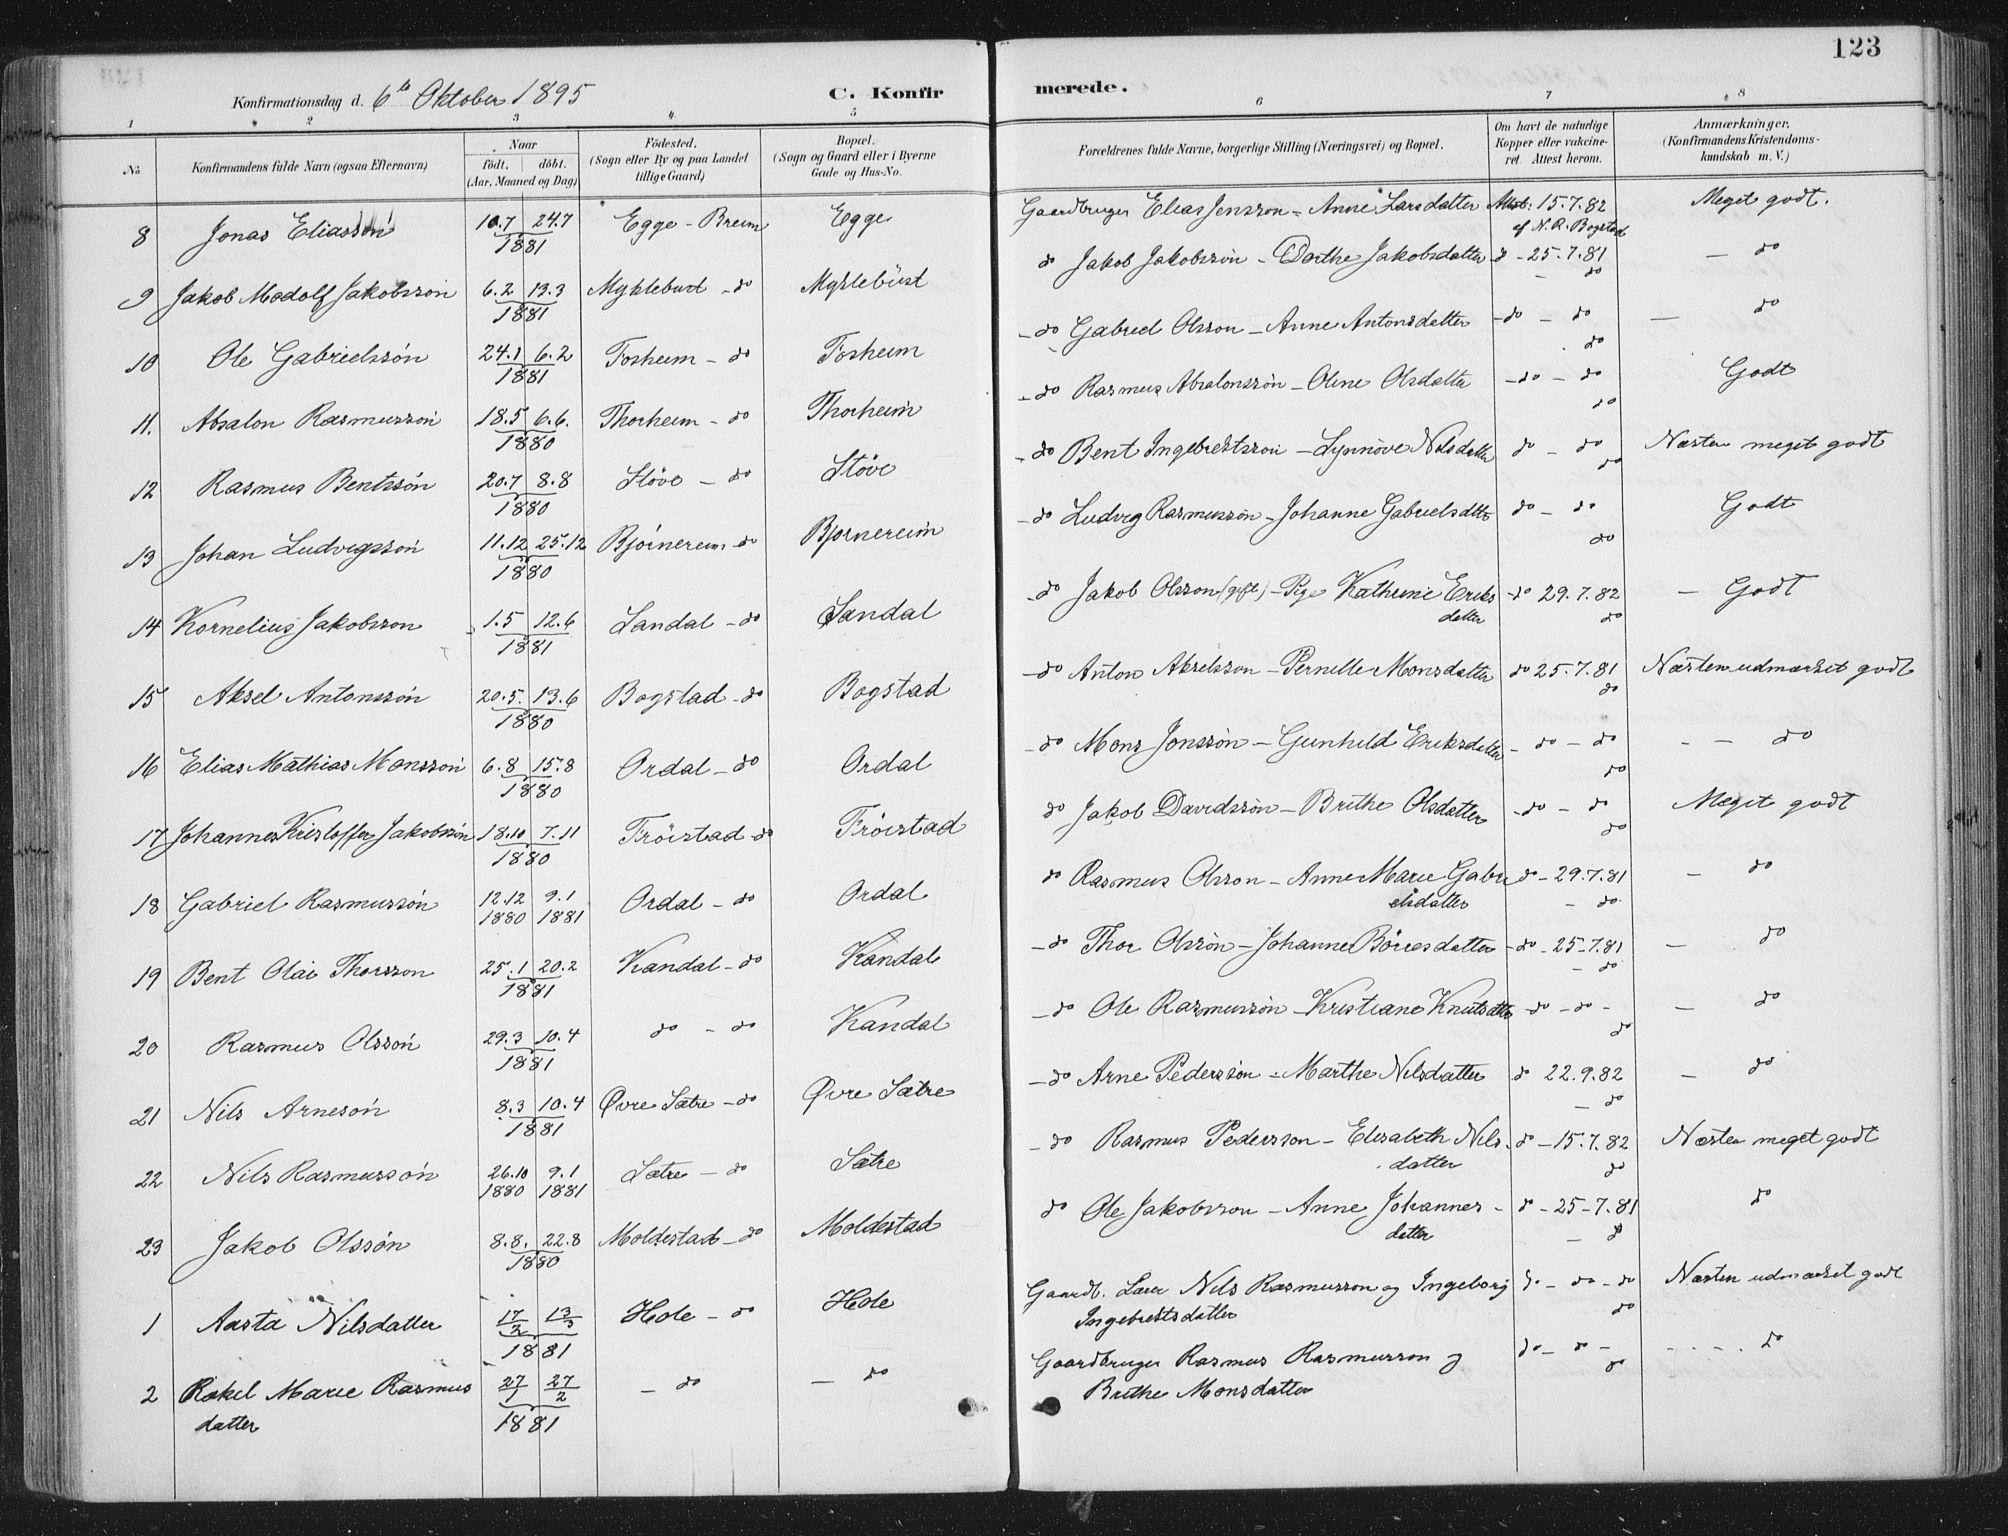 123
Konfirmationsdag d. 6te Oktober 1895
C. Konfirmerede.
1 2 3 4 5 6 7 8
No
Konfirmandens fulde Navn (ogsaa Efternavn)
Naar
födt. döbt.
(Aar, Maaned og Dag)
Födested.
(Sogn eller By og paa Landet
tillige Gaard)
Bopæl.
(Sogn og Gaard eller i Byerne
Gade og Hus-No.
Forældrenes fulde Navne, borgerlige Stilling (Næringsvei) og Bopæl.
Om havt de naturlige
Kopper eller vakcine-
ret. Attest herom.
Anmærkninger.
(Konfirmandens Kristendoms-
kundskab m. V.)
8 Jonas Eliassøn 10.7 24.7 1881 Egge - Breim Egge Gaardbruger Elias Jensson - Anne Larsdatter Attest: 15.7.82 af N.R. Bogstad Meget godt.
9 Jakob Modolf Jakobsson 6.2 13.3 1881 Myklebust - do Myklebust do Jakob Jakobssøn - Dorthe Jakobsdatter do - 25.7.81 do - do
10 Ole Gabrielssøn 24.1 6.2 1881 Forheim - do Forheim - do Gabriel Olsson - Anne Antonsdatter - do - do do - do
11. Absalon Rasmussøn 18.5 6.6. 1880 Thorheim - do Thorheim - do Rasmus Absalonssøn - Oline Olsdatter - do - do do Godt
12 Rasmus Bentssøn 20.7 8.8 1880 Støve - do Støve - do Bent Ingebrektsson - Synnøve Nilsdatter do - do do Næsten meget godt
13 Johan Ludvigssøn 11.12 25.12 1880 Bjørnereim - do Bjørnereim - do Ludvig Rasmussøn - Johanne Gabrielsdtr do - do do Godt
14 Kornelius Jakobsson 1.5 12.6 1881 Sandal - do Sandal - do Jakob Olsson (gift) - Pige Kathrine Eriksdatter - do 29.7.82 do - Godt
15 Aksel Antonssøn 20.5. 13.6 1880 Bogstad - do Bogstad - do Anton Akselsson - Pernille Monsdatter do 25.7.81 do Næsten udmærket godt
16 Elias Mathias Monssøn 6.8 15.8 1880 Ordal - do Ordal - do Mons Jonssøn - Gunhild Eriksdatter - do - do do - - do
17 Johannes Kristoffer Jakobssøn 18.10 7.11 1880 Frøistad - do Frøistad do Jakob Davidssøn - Brithe Olsdatter - do - do do Meget godt
18 Gabriel Rasmussøn 12.12 1880 9.1 1881 Ordal - do Ordal do Rasmus Olsson - Anne Marie Gabrielsdatter do - 29.7.81 - do - do
19 Bent Olai Thorsson 25.1 20.2 1881 Kandal - do Kandal - do Thor Olssøn - Johanne Børresdatter - do - 25.7.81 - do - do
20 Rasmus Olssøn 29.3 10.4 1881 do - do Kandal - do Ole Rasmussøn - Kristiane Knutsdtr - do - do - do - do
21 Nils Arnesøn 8.3 10.4 1881 Øvre Sætre - do Øvre Sætre - do Arne Pederssøn - Marthe Nilsdatter do 22.9.82 - do - do
22 Nils Rasmussøn 26.10 1880 9.1 1881 Sætre - do Sætre - do Rasmus Pedersson - Elisabeth Nilsdatter do - 15.7.82 do Næsten meget godt
23 Jakob Olssøn 8.8. 22.8 1880 Moldestad - do Moldestad do Ole Jakobsson - Anne Johannesdatter do - 25-7.81 - do do
1 Aasta Nilsdatter 17/2 13/3 1881 Hole - do Hole Gaardb. Lærer Nils Rasmusson og Ingeborg Ingebrektsdatter do - do - do do Næsten udmærket godt
2 Rakel Marie Rasmusdatter 27/1 27/2 1881 - do - do Gaardbruger Rasmus Rasmusson og Brithe Monsdatter do - do - do - - - - do